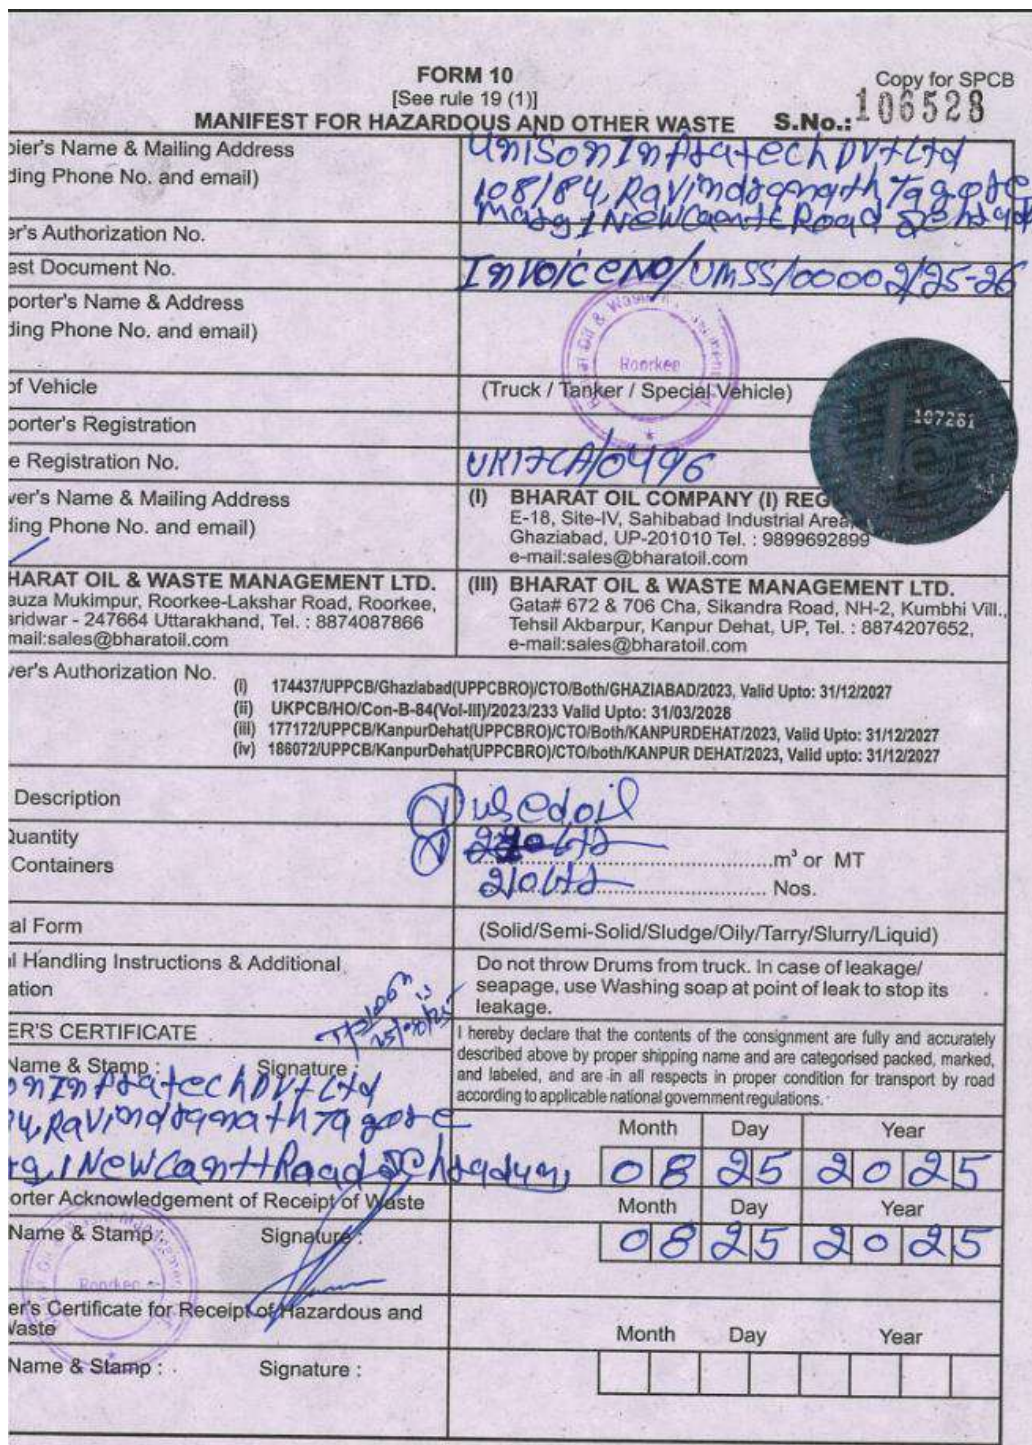 FORM 10
Copy for SPCB
[See rule 19 (1)]
MANIFEST FOR HAZARDOUS AND OTHER WASTE S.No.: 106528
pier's Name & Mailing Address
ding Phone No. and email)
Unison Infratech Pvt Ltd
108/84, Ravindranath Tagore
Marg 1 New Cantt Road Dehrad
er's Authorization No.
est Document No.
Invoice NO/UMSS/00002/25-26
porter's Name & Address
ding Phone No. and email)
Bharat Oil & Waste Management
Roorkee
of Vehicle
(Truck / Tanker / Special Vehicle)
107261
porter's Registration
e Registration No.
UK17CA/0496
ver's Name & Mailing Address
ding Phone No. and email)
(I) BHARAT OIL COMPANY (I) REG
E-18, Site-IV, Sahibabad Industrial Area,
Ghaziabad, UP-201010 Tel. : 9899692899
e-mail:sales@bharatoil.com
HARAT OIL & WASTE MANAGEMENT LTD.
auza Mukimpur, Roorkee-Lakshar Road, Roorkee,
aridwar - 247664 Uttarakhand, Tel. : 8874087866
mail:sales@bharatoil.com
(III) BHARAT OIL & WASTE MANAGEMENT LTD.
Gata# 672 & 706 Cha, Sikandra Road, NH-2, Kumbhi Vill.,
Tehsil Akbarpur, Kanpur Dehat, UP, Tel. : 8874207652,
e-mail:sales@bharatoil.com
ver's Authorization No.
(i) 174437/UPPCB/Ghaziabad(UPPCBRO)/CTO/Both/GHAZIABAD/2023, Valid Upto: 31/12/2027
(ii) UKPCB/HO/Con-B-84(Vol-III)/2023/233 Valid Upto: 31/03/2028
(iii) 177172/UPPCB/KanpurDehat(UPPCBRO)/CTO/Both/KANPURDEHAT/2023, Valid Upto: 31/12/2027
(iv) 186072/UPPCB/KanpurDehat(UPPCBRO)/CTO/both/KANPUR DEHAT/2023, Valid upto: 31/12/2027
Description
used oil
Quantity
m³ or MT
Containers
210 Ltr Nos.
al Form
(Solid/Semi-Solid/Sludge/Oily/Tarry/Slurry/Liquid)
l Handling Instructions & Additional
ation
Do not throw Drums from truck. In case of leakage/
seapage, use Washing soap at point of leak to stop its
leakage.
ER'S CERTIFICATE
Name & Stamp : Signature :
I hereby declare that the contents of the consignment are fully and accurately
described above by proper shipping name and are categorised packed, marked,
and labeled, and are in all respects in proper condition for transport by road
according to applicable national government regulations.
on Infratech Pvt Ltd
4, Ravindranath Tagore
rg, 1 New Cantt Road Dehradun,
Month Day Year
08 25 2025
orter Acknowledgement of Receipt of Waste
Month Day Year
Name & Stamp : Signature :
08 25 2025
Roorkee
er's Certificate for Receipt of Hazardous and
Waste
Month Day Year
Name & Stamp : Signature :